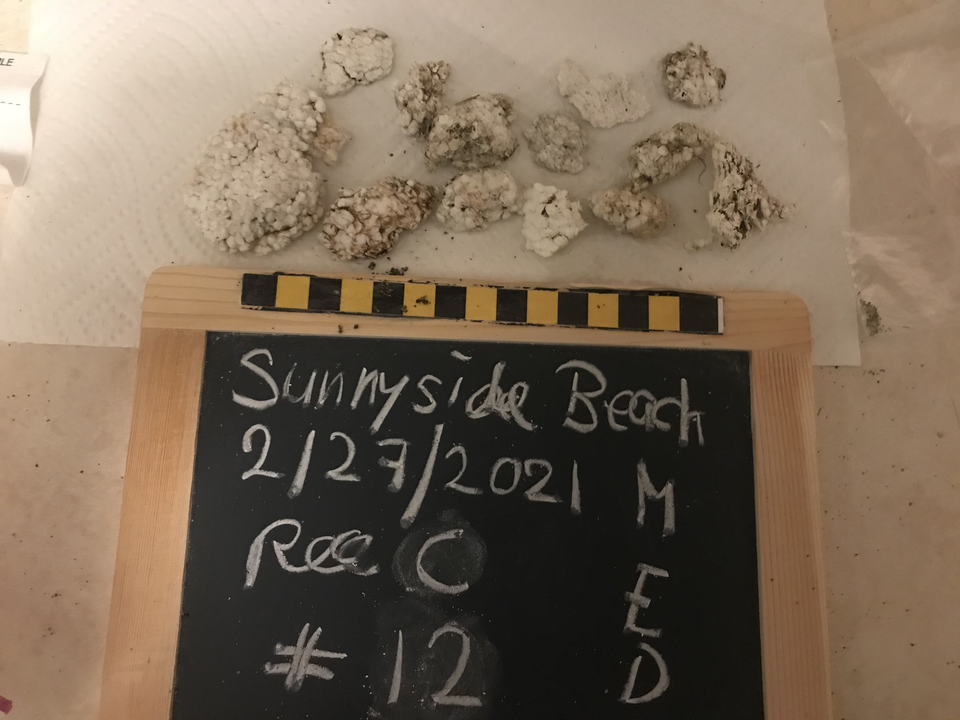 LE
Sunnyside Beach
2/27/2021
Rec C
# 12
MED